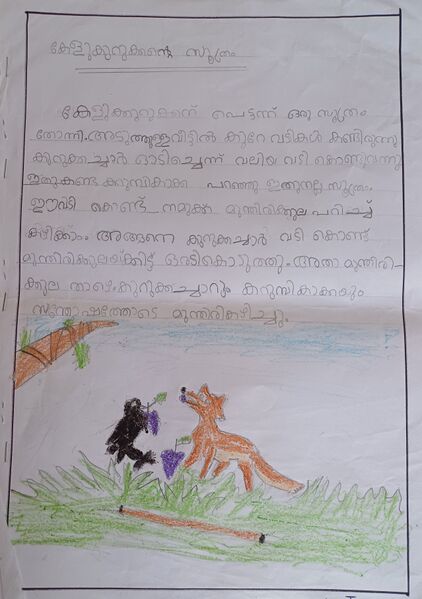 കേളുക്കുറുക്കന്റെ സൂത്രം
കേളുക്കുറുക്കന് പെട്ടന്ന് ഒരു സൂത്രം
തോന്നി. അടുത്തുള്ള വീട്ടിൽ കുറേ വടികൾ കണ്ടിരുന്നു
കുറുക്കച്ചാർ ഓടിച്ചെന്ന് വലിയ വടി കൊണ്ടുവന്നു
ഇതുകണ്ട കറുമ്പികാക്ക പറഞ്ഞു ഇതുനല്ല സൂത്രം.
ഈവടി കൊണ്ട് നമുക്ക് മുന്തിരിക്കുല പറിച്ച്
കഴിക്കാം അങ്ങനെ കുറുക്കച്ചാർ വടി കൊണ്ട്
മുന്തിരിക്കുലയ്ക്കിട്ട് ഒരടികൊടുത്തു. അതാ മുന്തിരി-
ക്കുല താഴെ. കുറുക്കച്ചാറും കറുമ്പികാക്കയും
സന്തോഷത്തോടെ മുന്തിരികഴിച്ചു.